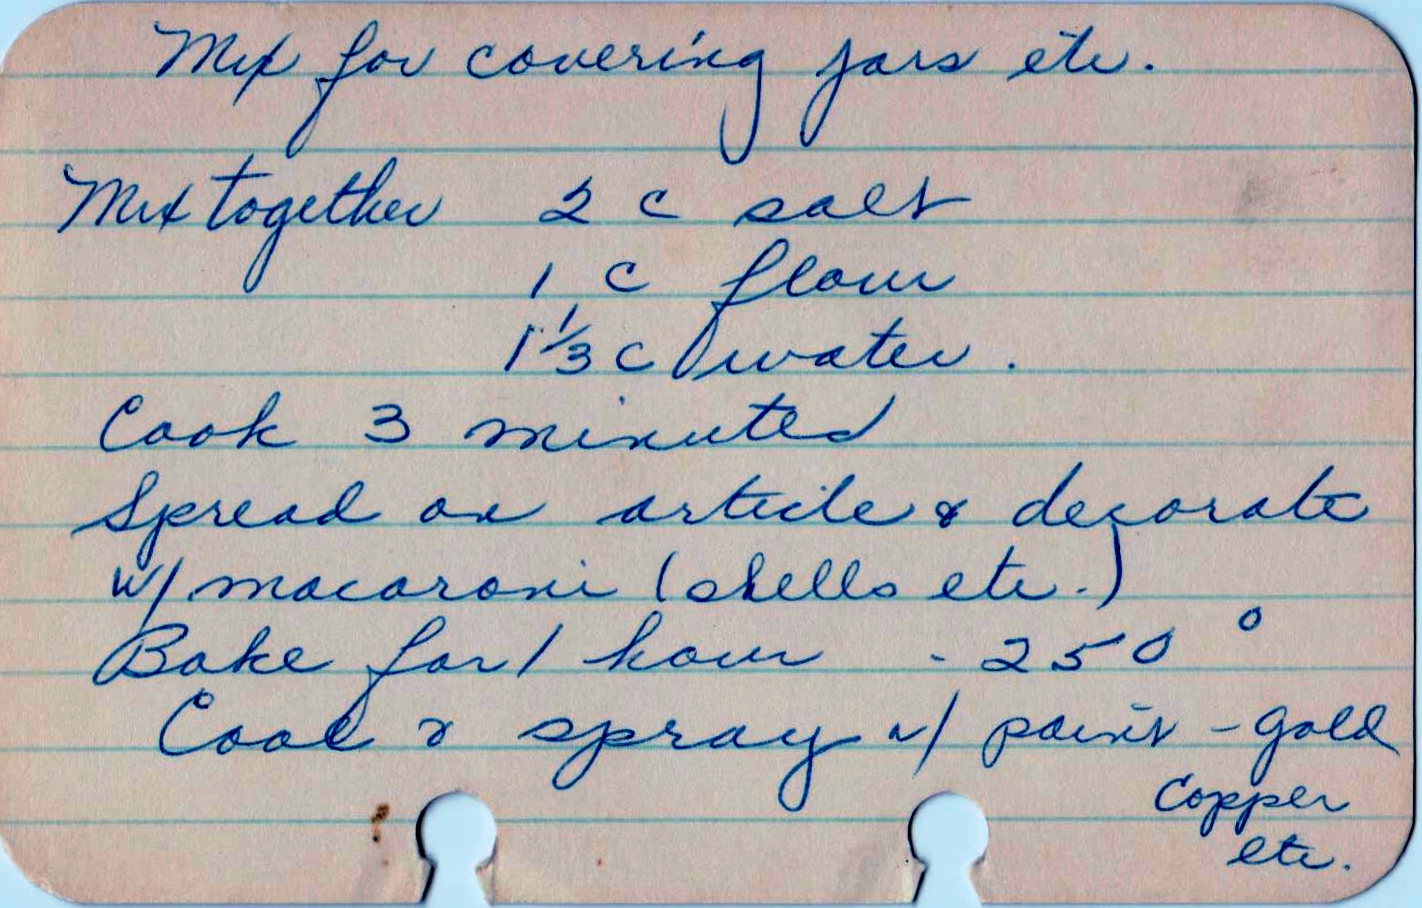 Mix for covering jars etc.
Mix together 2 c salt
1 c flour
1 1/3 c water.
Cook 3 minutes
Spread on article & decorate
w/ macaroni (shells etc.)
Bake for 1 hour - 250°
Cool & spray w/ paint - gold
Copper
etc.